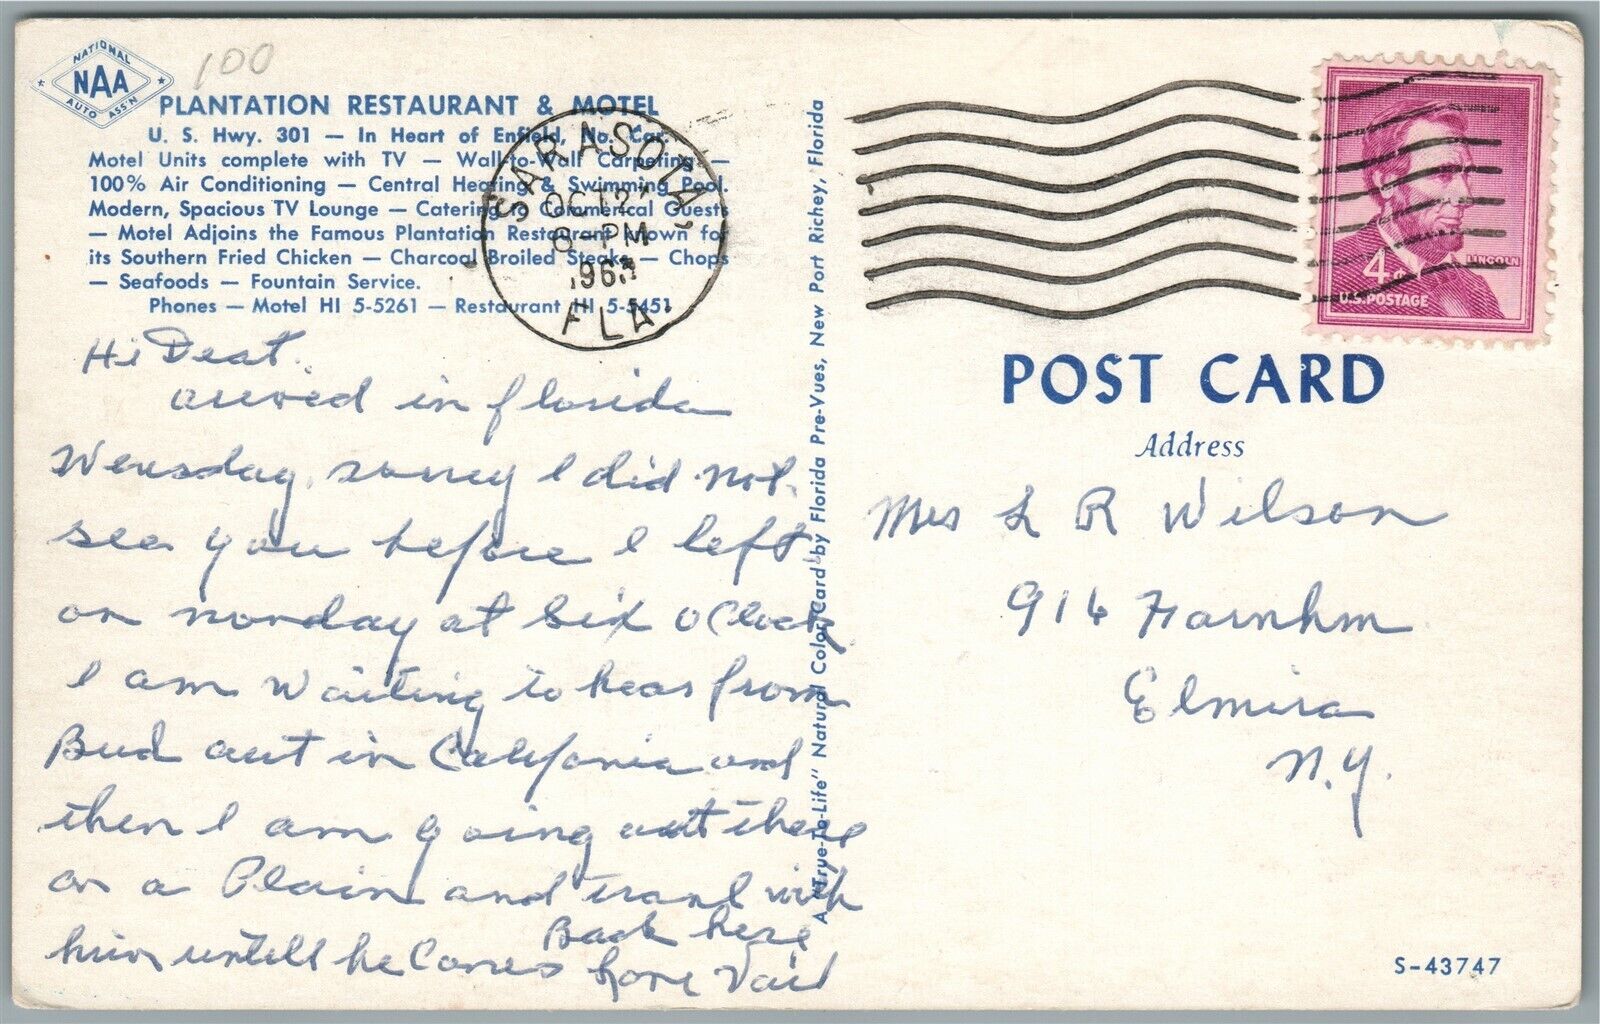 NATIONAL
NAA
AUTO ASS'N
100
PLANTATION RESTAURANT & MOTEL
U. S. Hwy. 301 — In Heart of Enfield, No. Car.
Motel Units complete with TV — Wall-to-Wall Carpeting —
100% Air Conditioning — Central Heating & Swimming Pool.
Modern, Spacious TV Lounge — Catering to Commerical Guests
— Motel Adjoins the Famous Plantation Restaurant known for
its Southern Fried Chicken — Charcoal Broiled Steaks — Chops
— Seafoods — Fountain Service.
Phones — Motel HI 5-5261 — Restaurant HI 5-5451
SARASOTA
OCT 2
8 - PM
196
FLA.
Hi
arived in florida
Wensday, sorrey I did not
see you before I left
on monday at six o Clock
I am waiting to hear from
Bud out in California and
then I am going out there
on a Plain and travl with
him untill he Comes Back here
Love
A "True-To-Life" Natural Color Card by Florida Pre-Vues, New Port Richey, Florida
LINCOLN
4¢
U.S. POSTAGE
POST CARD
Address
Mrs L R Wilson
914 Farnhm
Elmira
N.Y.
S-43747